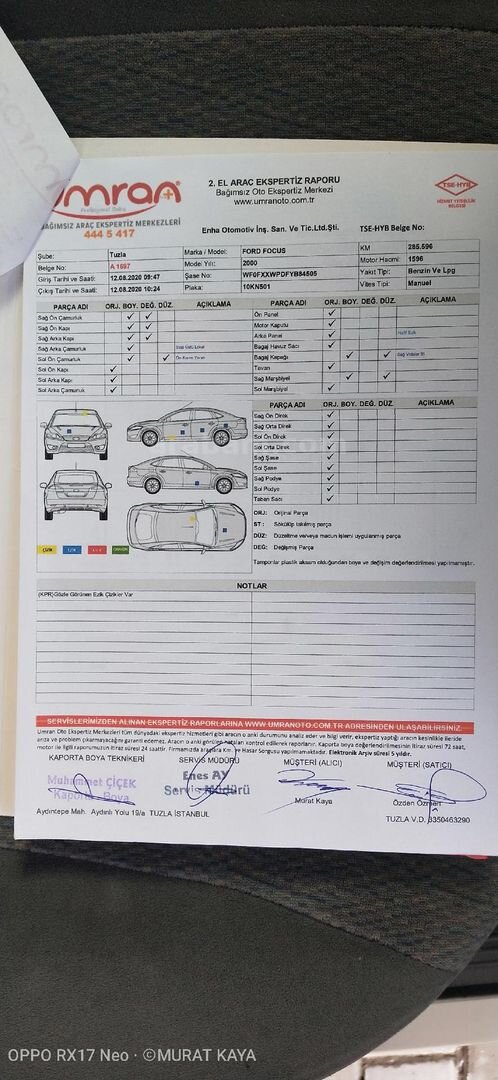 umran
Profesyonel Bakış
BAĞIMSIZ ARAÇ EKSPERTİZ MERKEZLERİ
444 5 417
2. EL ARAÇ EKSPERTİZ RAPORU
Bağımsız Oto Ekspertiz Merkezi
www.umranoto.com.tr
TSE-HYB
HİZMET YETERLİLİK
BELGESİ
Enha Otomotiv İnş. San. Ve Tic.Ltd.Şti.
TSE-HYB Belge No:
Şube: Tuzla Marka / Model: FORD FOCUS KM 285.596
Belge No: A 1697 Model Yılı: 2000 Motor Hacmi: 1596
Giriş Tarihi ve Saati: 12.08.2020 09:47 Şase No: WF0FXXWPDFYB84505 Yakıt Tipi: Benzin Ve Lpg
Çıkış Tarihi ve Saati: 12.08.2020 10:24 Plaka: 10KN501 Vites Tipi: Manuel
PARÇA ADI ORJ. BOY. DEĞ. DÜZ. AÇIKLAMA
Sağ Ön Çamurluk ✓ ✓
Sağ Ön Kapı ✓ ✓
Sağ Arka Kapı ✓ ✓
Sağ Arka Çamurluk ✓
Sol Ön Çamurluk ✓ ✓
Sol Ön Kapı ✓
Sol Arka Kapı ✓
Sol Arka Çamurluk ✓
Ön Panel ✓
Motor Kaputu ✓
Arka Panel ✓ Hafif Ezik
Bagaj Havuz Sacı ✓
Bagaj Kapağı ✓ ✓
Tavan ✓
Sağ Marşbiyel ✓ ✓
Sol Marşbiyel ✓
PARÇA ADI ORJ. BOY. DEĞ. DÜZ. AÇIKLAMA
Sağ Ön Direk ✓
Sağ Orta Direk ✓
Sol Ön Direk ✓
Sol Orta Direk ✓
Sağ Şase ✓
Sol Şase ✓
Sağ Podye ✓
Sol Podye ✓
Taban Sacı ✓
ÇİZİK EZİK
ORJ: Orijinal Parça
ST : Sökülüp takılmış parça
DÜZ: Düzeltme ve/veya macun işlemi uygulanmış parça
DEĞ: Değişmiş Parça
Tamponlar plastik aksam olduğundan boya ve değişim değerlendirilmesi yapılmamıştır.
NOTLAR
(KPR)Gözle Görünen Ezik Çizikler Var
SERVİSLERİMİZDEN ALINAN EKSPERTİZ RAPORLARINA WWW.UMRANOTO.COM.TR ADRESİNDEN ULAŞABİLİRSİNİZ.
Umran Oto Ekspertiz Merkezleri tüm dünyadaki ekspertiz hizmetleri gibi aracın o anki durumunu analiz eder ve bilgi verir, ekspertiz yaptığı aracın kesinlikle ileride
arıza ve problem çıkarmayacağını garanti edemez. Aracın o anki görülen hataları kontrol edilerek raporlanır. Kaporta boya değerlendirilmesinin itiraz süresi 72 saat,
motor ile ilgili raporumuzun itiraz süresi 24 saattir. Firmamızda araçlara Km. ve Hasar Sorgusu yapılmamaktadır. Elektronik Arşiv süresi 5 yıldır.
KAPORTA BOYA TEKNİKERİ SERVİS MÜDÜRÜ MÜŞTERİ (ALICI) MÜŞTERİ (SATICI)
Muhammet ÇİÇEK
Kaporta Boya
Enes AY
Servis Müdürü
Murat Kaya
Aydıntepe Mah. Aydınlı Yolu 19/a TUZLA İSTANBUL
TUZLA V.D. 3350463290
OPPO RX17 Neo · ©MURAT KAYA